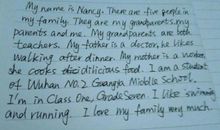 My name is Nancy. There are five people in
my family. They are my grandparents, my
parents and me. My grandparents are both
teachers. My father is a doctor, he likes
walking after dinner. My mother is a worker,
she cooks dicioticious food. I am a student
of Wuhan No.2 Guangya Middle School.
I'm in Class One, Grade Seven. I like swimming
and running. I love my family very much.